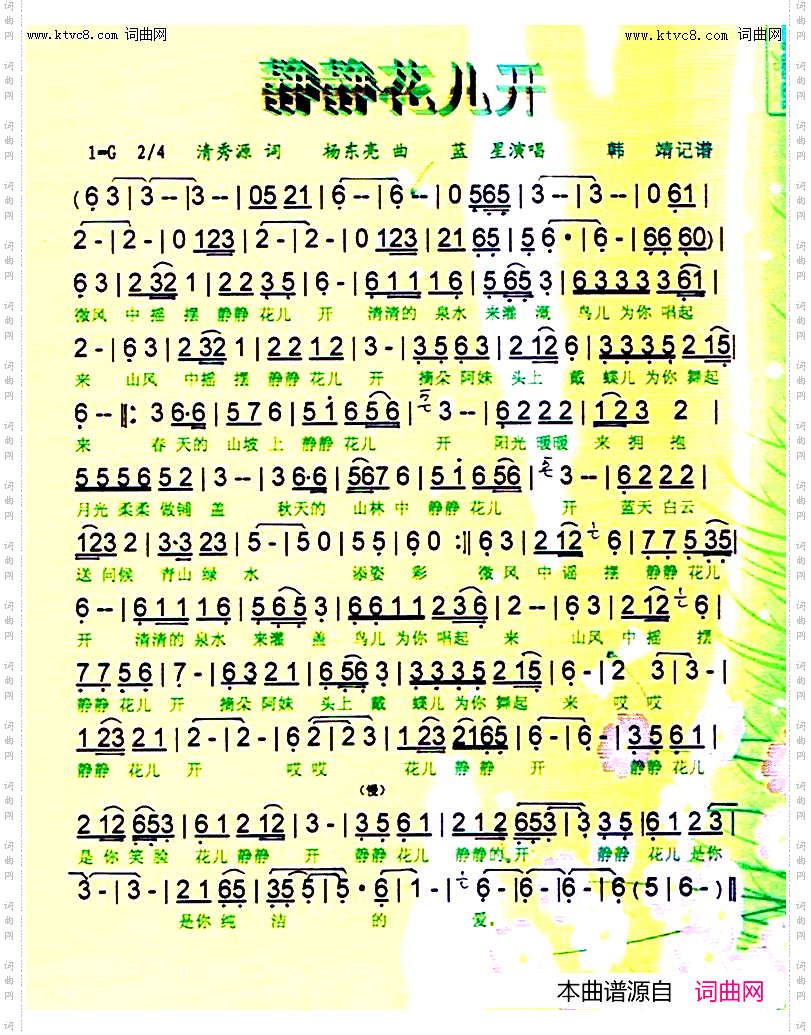 www.ktvc8.com 词曲网
www.ktvc8.com 词曲网
静静花儿开
1=G 2/4 清秀源 词 杨东亮 曲 蓝 星演唱 韩 靖记谱
(6 3 | 3 -- | 3 -- | 05 21 | 6 -- | 6 -- | 0 565 | 3 -- | 3 -- | 0 61 |
2 - | 2 - | 0 123 | 2 - | 2 - | 0 123 | 21 65 | 5 6· | 6 - | 66 60) |
6 3 | 2 32 1 | 22 35 | 6 - | 6 11 16 | 5 65 3 | 6 3 3 3 3 61 |
微风 中摇 摆 静静 花儿 开 清清的 泉水 来灌 溉 鸟儿 为你 唱起
2 - | 6 3 | 2 32 1 | 22 12 | 3 - | 35 63 | 2 12 6 | 3 3 3 5 2 15 |
来 山风 中摇 摆 静静 花儿 开 摘朵 阿妹 头上 戴 蝶儿 为你 舞起
6 -- ‖: 3 6·6 | 5 7 6 | 5 1 6 5 6 | 3 -- | 6 2 2 2 | 1 2 3 2 |
来 春 天的 山坡 上 静静 花儿 开 阳光 暖暖 来 拥 抱
5 5 5 6 5 2 | 3 -- | 3 6·6 | 567 6 | 5 1 6 56 | 3 -- | 6 2 2 2 |
月光 柔柔 做铺 盖 秋天的 山林 中 静静 花儿 开 蓝天 白云
123 2 | 3·3 23 | 5 - | 5 0 | 5 5 | 6 0 :‖ 6 3 | 2 12 6 | 7 7 5 35 |
送 问候 青山 绿 水 添姿 彩 微 风 中 谣 摆 静静 花儿
6 -- | 6 1 1 1 6 | 5 6 5 3 | 6 6 1 1 2 3 6 | 2 -- | 6 3 | 2 12 6 |
开 清清的 泉水 来灌 盖 鸟儿 为你 唱起 来 山风 中 摇 摆
7 7 5 6 | 7 - | 6 3 2 1 | 6 56 3 | 3 3 3 5 2 15 | 6 - | 2 3 | 3 - |
静静 花儿 开 摘朵 阿妹 头上 戴 蝶儿 为你 舞起 来 哎 哎
1 23 2 1 | 2 - | 2 - | 6 2 | 2 3 | 1 23 2165 | 6 - | 6 - | 3 5 6 1 |
静静 花儿 开 哎哎 花儿 静 静 开 静静 花儿
(慢)
2 12 653 | 6 1 2 12 | 3 - | 3 5 6 1 | 2 1 2 653 | 3 3 5 | 6 1 2 3 |
是 你 笑 脸 花儿 静静 开 静静 花儿 静静的 开 静静 花儿 是你
3 - | 3 - | 2 1 65 | 35 5 | 5· 6 | 1 - | 6 - | 6 - | 6 - | 6 (5 | 6 -- ) ‖
是你 纯 洁 的 爱。
本曲谱源自 词曲网